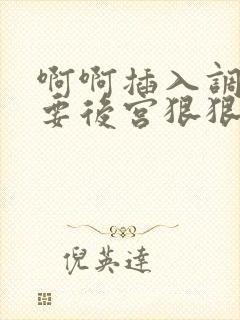 啊啊插入調
要後宮狠狠
倪英達